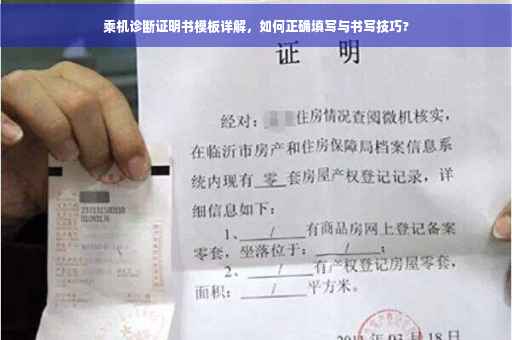 乘机诊断证明书模板详解，如何正确填写与书写技巧?
证 明
经对：住房情况查阅微机核实，
在临沂市房产和住房保障局档案信息系
统内现有 零 套房屋产权登记记录，详
细信息如下：
1、 / 有商品房网上登记备案
零套，坐落位于： / ；
2、 / 有产权登记房屋零套，
面积： / 平方米。
03月18日